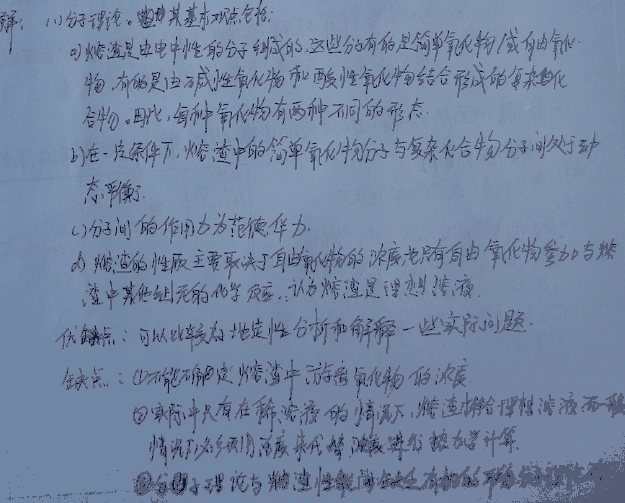 解: (1) 分子理论。其基本观点包括:
a) 熔渣是由电中性的分子组成的。这些分子有的是简单氧化物/或自由氧化
物,有的是由碱性氧化物和酸性氧化物结合形成的复杂化
合物。因此,每种氧化物有两种不同的形态.
b) 在一定条件下,熔渣中的简单氧化物分子与复杂化合物分子间处于动
态平衡.
c) 分子间的作用力为范德华力.
d) 熔渣的性质主要取决于自由氧化物的浓度,也只有自由氧化物参加与熔
渣中其他组元的化学反应. 认为熔渣是理想溶液.
优点: 可以比较好地定性分析和解释一些实际问题.
缺点: ①不能确定熔渣中游离氧化物的浓度.
②实际中只有在稀溶液的情况下,熔渣符合理想溶液而一般
情况下必须用活度来代替浓度进行热力学计算.
③分子理论与熔渣性能间缺乏有机的